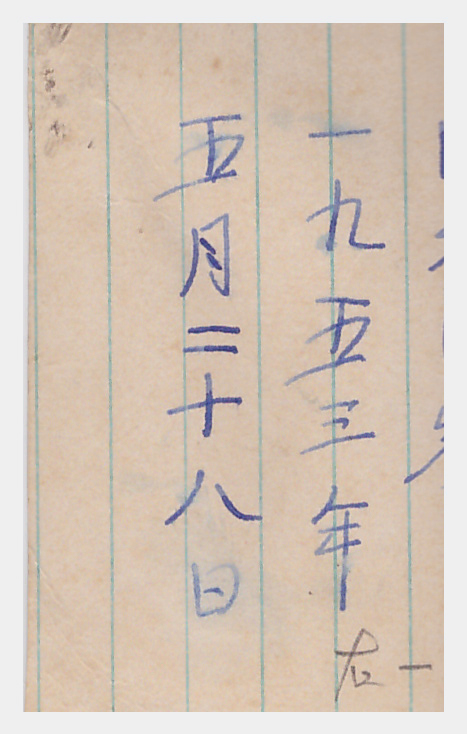 一九五三年
五月二十八日
右一